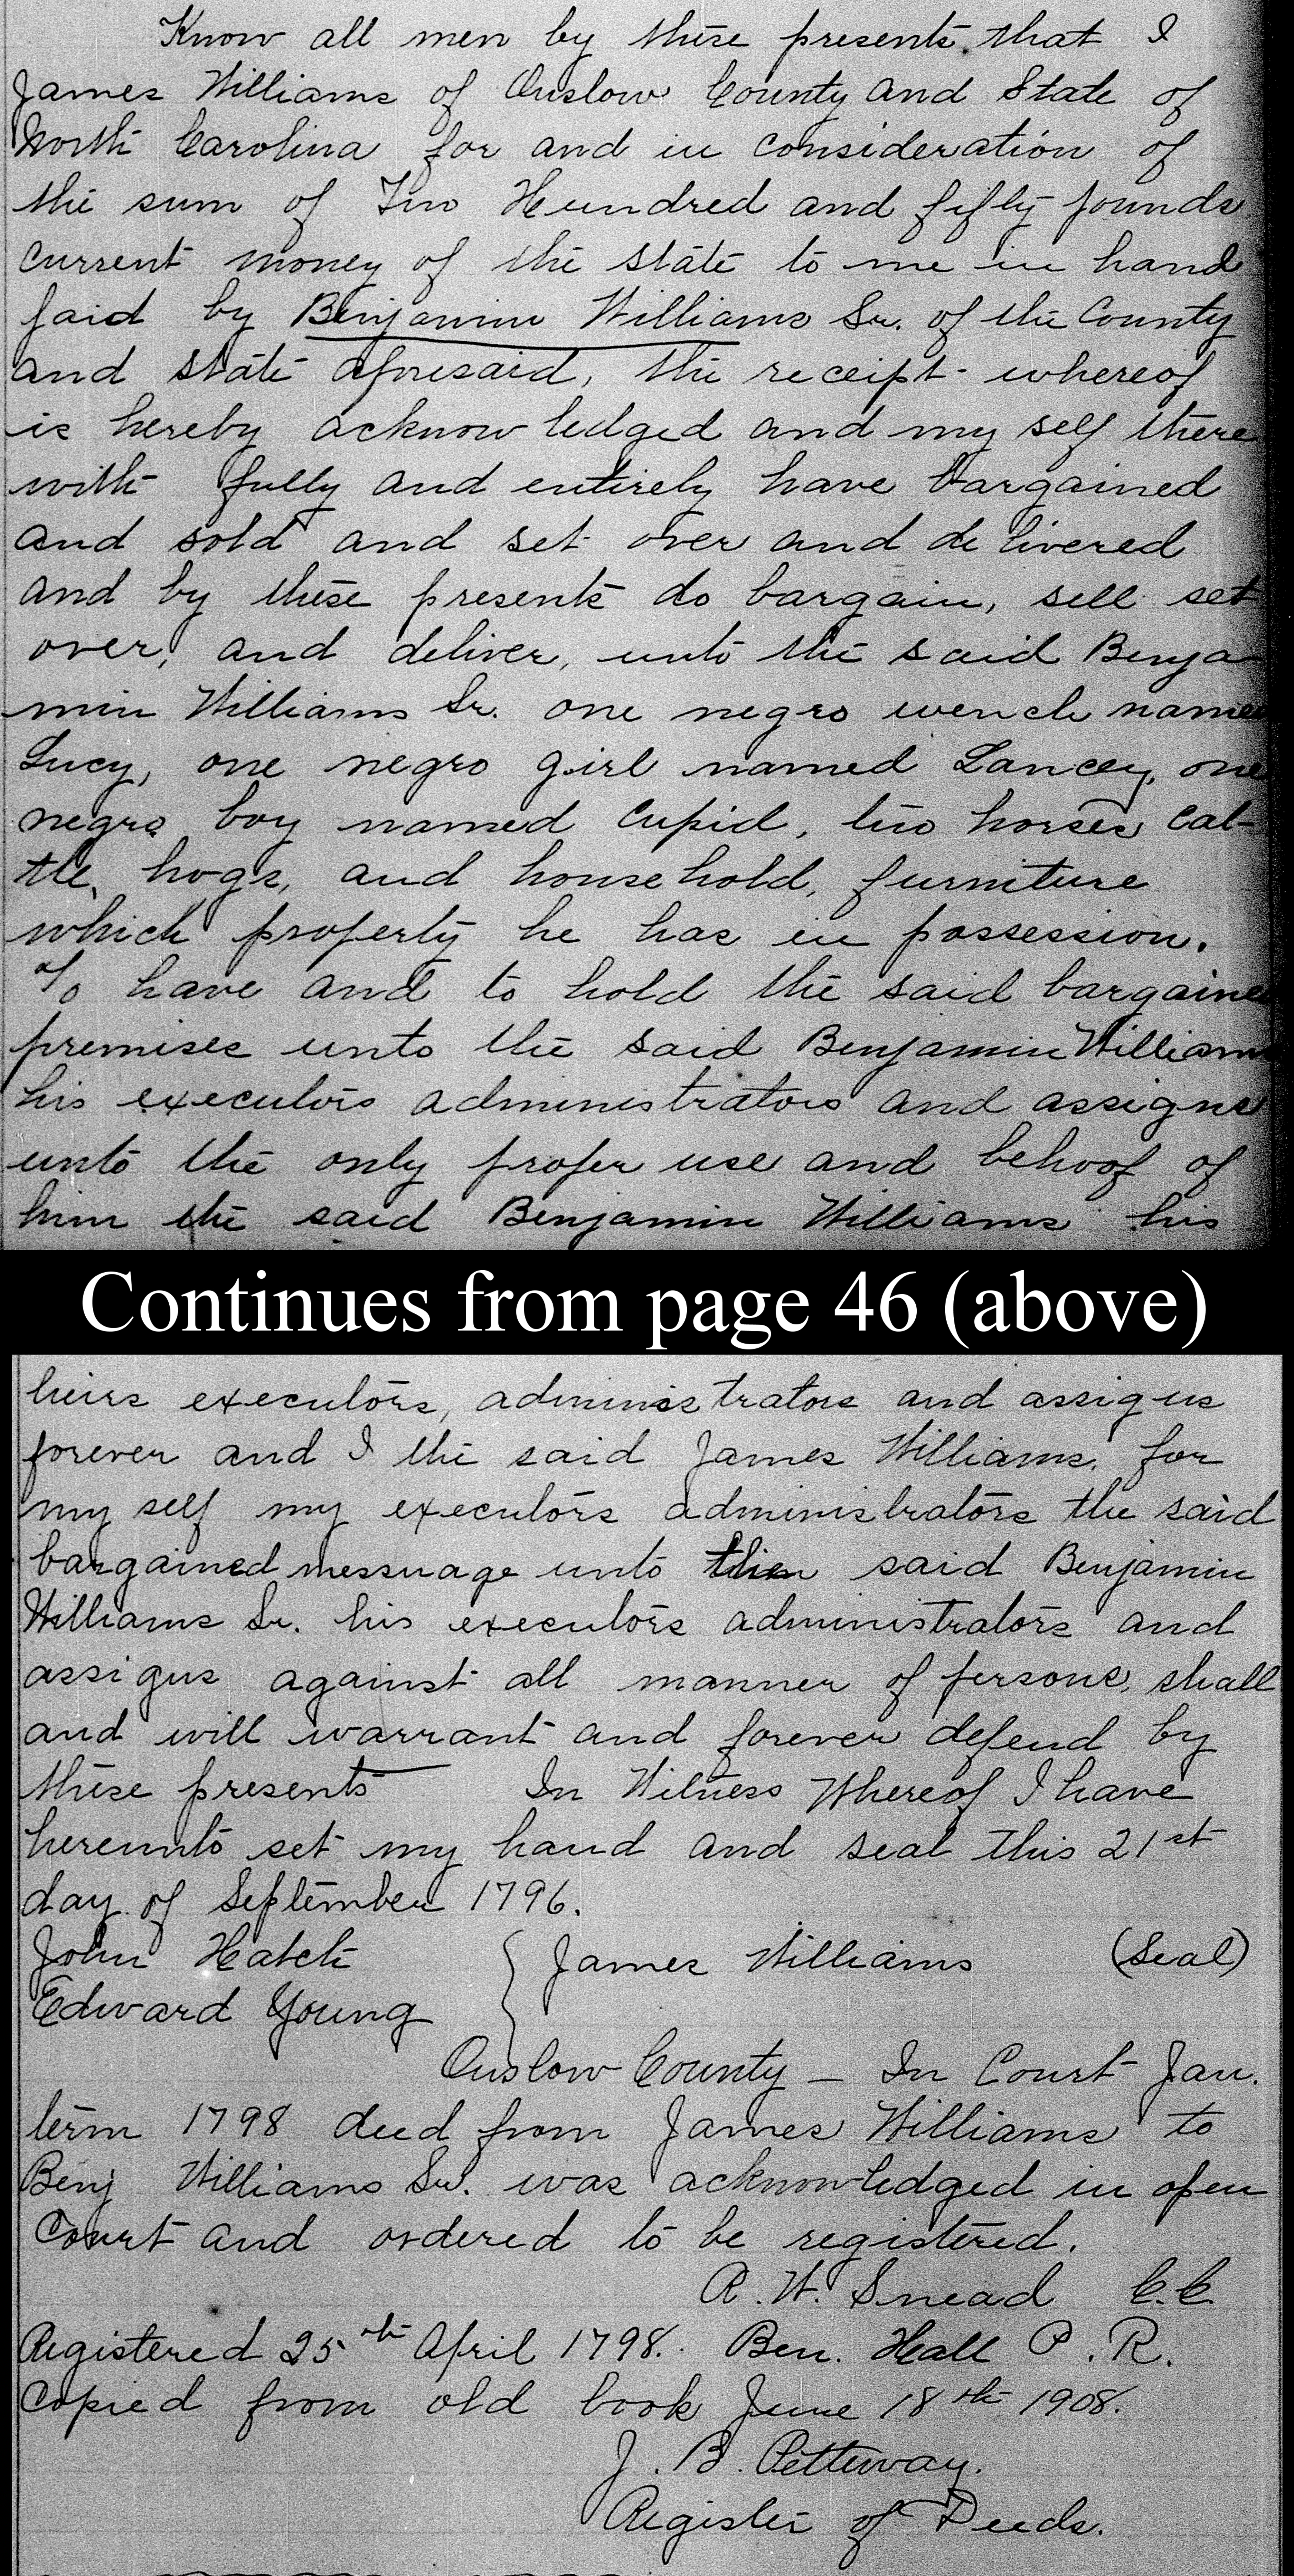 Know all men by these presents that I
James Williams of Onslow County and State of
North Carolina for and in consideration of
the sum of Two Hundred and fifty pounds
current money of the state to me in hand
paid by Benjamin Williams Sr. of the County
and state aforesaid, the receipt whereof
is hereby acknowledged and my self there
with fully and entirely have bargained
and sold and set over and delivered
and by these presents do bargain, sell set
over, and deliver, unto the said Benja-
min Williams Sr. one negro wench named
Lucy, one negro girl named Lancey, one
negro boy named Cupid, two horses cat-
tle, hogs, and household, furniture
which property he has in possession.
To have and to hold the said bargained
premises unto the said Benjamin Williams
his executors administrators and assigns
unto the only proper use and behoof of
him the said Benjamin Williams his
Continues from page 46 (above)
heirs executors, administrators and assigns
forever and I the said James Williams, for
my self my executors administrators the said
bargained messuage unto the said Benjamin
Williams Sr. his executors administrators and
assigns against all manner of persons, shall
and will warrant and forever defend by
these presents In Witness Whereof I have
hereunto set my hand and seal this 21st
day of September 1796.
John Hatch } James Williams (Seal)
Edward Young
Onslow County — In Court Jan.
term 1798 deed from James Williams to
Benj Williams Sr. was acknowledged in open
Court and ordered to be registered.
R. W. Snead C.C.
Registered 25th April 1798. Ben. Hall P. R.
Copied from old book June 18th 1908.
J. B. Petteway.
Register of Deeds.